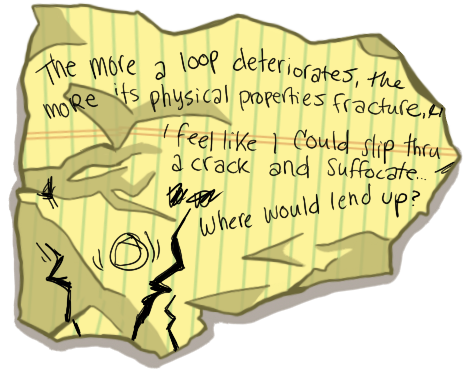 The more a loop deteriorates, the
more its physical properties fracture,
I feel like I could slip thru
a crack and suffocate...
Where would I end up?